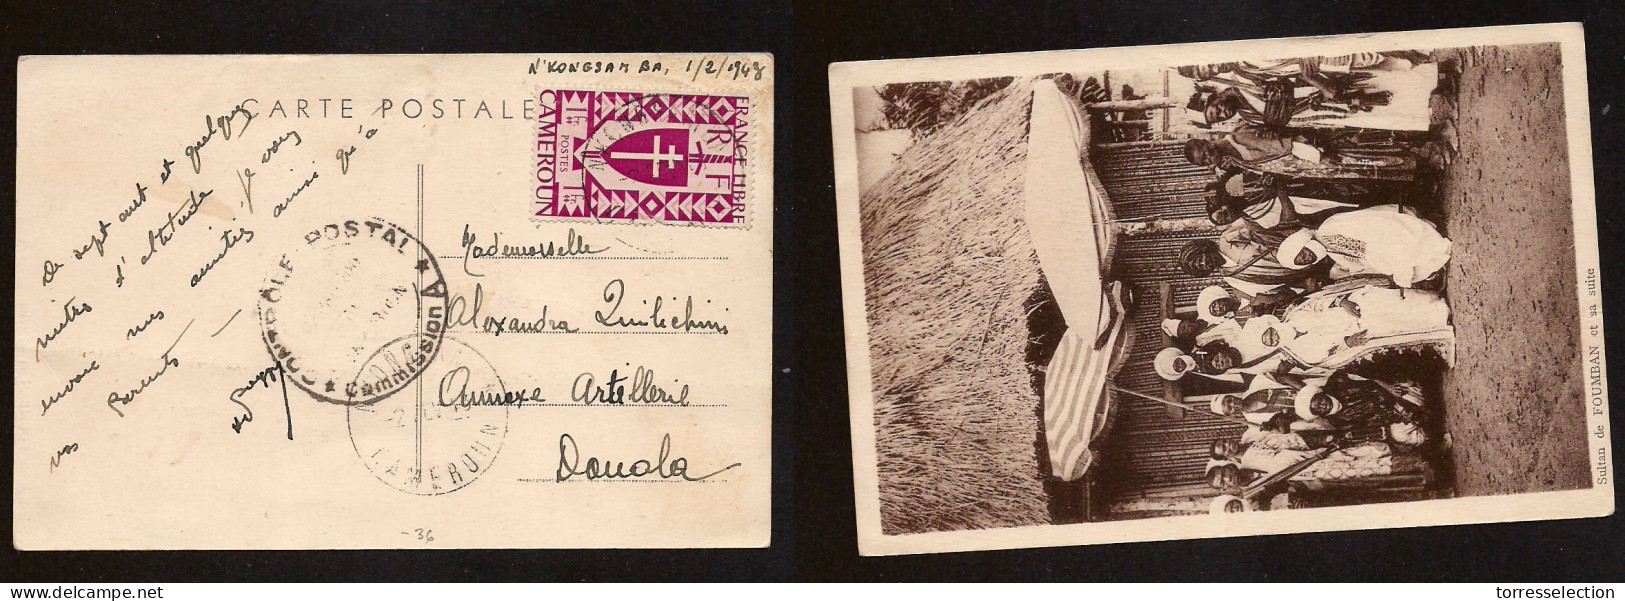 N'KONGSAMBA, 1/2/1943
CARTE POSTALE
FRANCE LIBRE
RF
POSTES
CAMEROUN
De sept cent et quelques
mètres d'altitude je vous
envoie mes amitiés ainsi qu'à
vos Parents —
CONTRÔLE POSTAL
Commission A
CAMEROUN
Mademoiselle
Alexandra Quilichini
Annexe Artillerie
Douala
-36
Sultan de FOUMBAN et sa suite
delcampe.com
torresselection